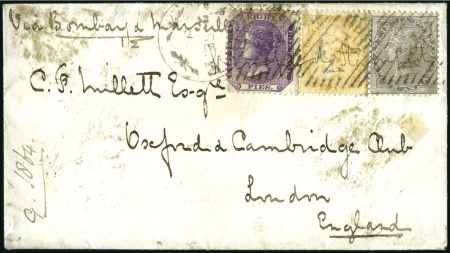 Via Bombay & Marseille
1/2
EIGHT
PIES.
C. P. Millett Esqre
Oxford & Cambridge Club
London
England